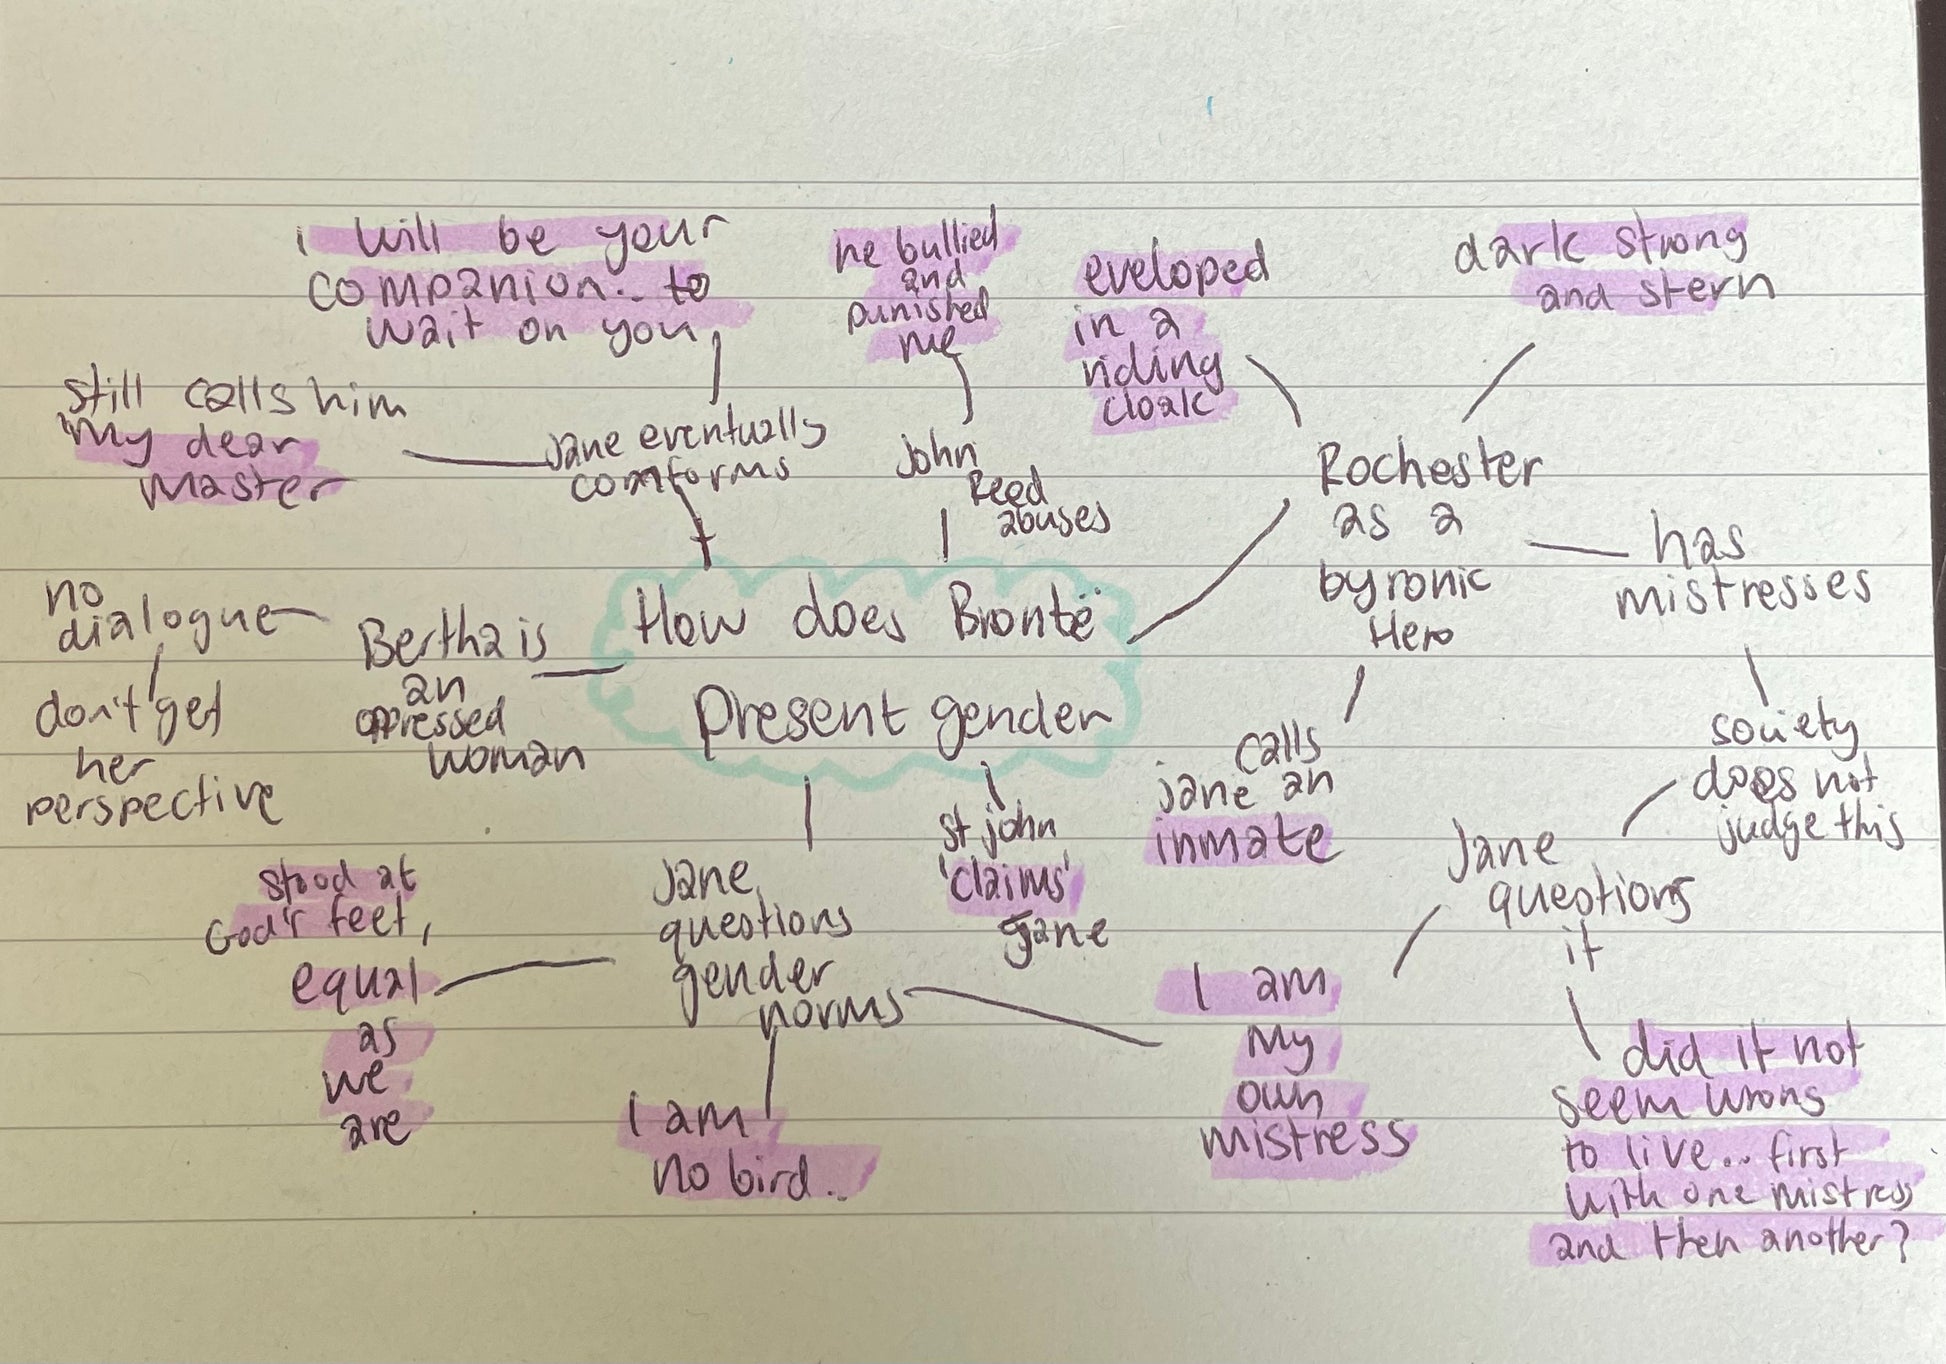 i will be your
companion.. to
wait on you
he bullied
and
punished
me
eveloped
in a
riding
cloak
dark strong
and stern
still calls him
"my dear
master
Jane eventually
comforms
John
Reed
abuses
Rochester
as a
byronic
Hero
has
mistresses
society
does not
judge this
no
dialogue
don't get
her
perspective
Bertha is
an
oppressed
woman
How does Brontë
present gender
calls
jane an
inmate
Jane
questions
it
stood at
God's feet,
equal
as
we
are
Jane
questions
gender
norms
st john
'claims'
Jane
I am
no bird..
I am
my
own
mistress
did it not
seem wrong
to live... first
with one mistress
and then another?